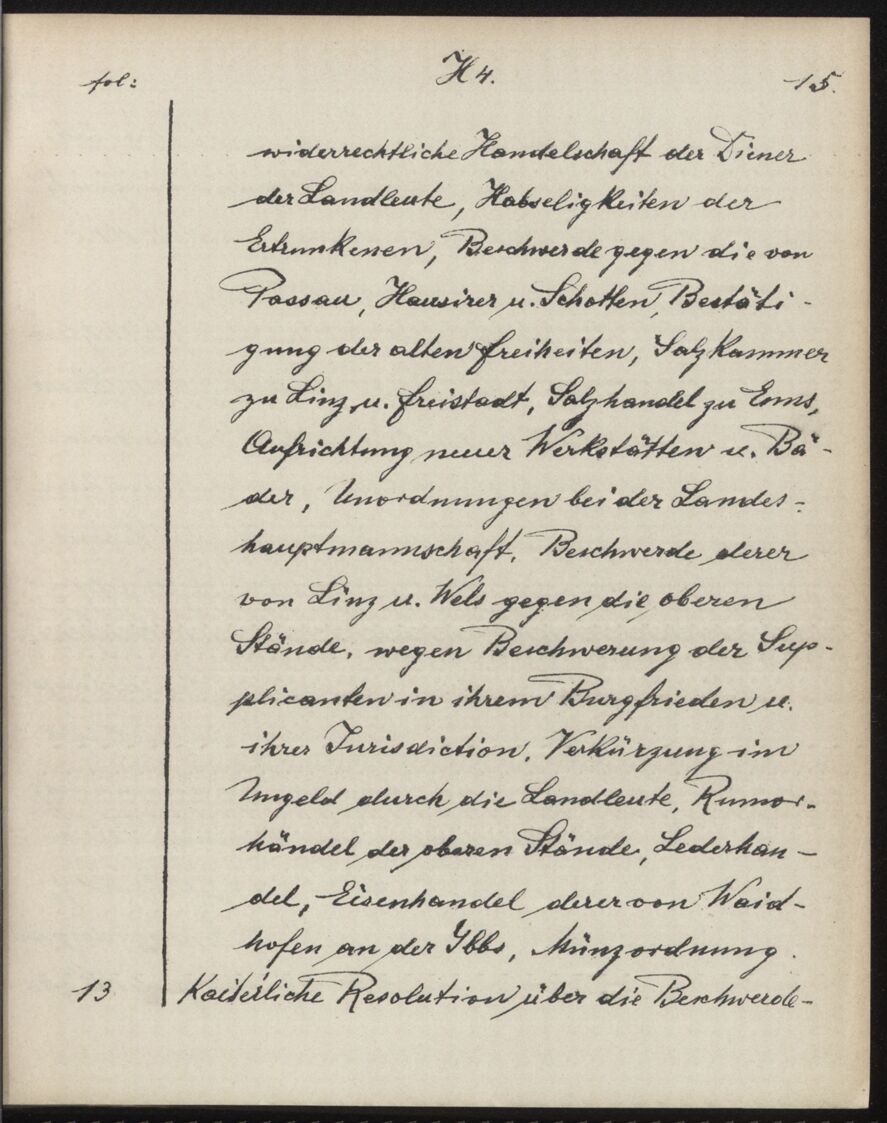 fol: H 4. 15.
widerrechtliche Handelschaft der Diener
der Landleute, Habseligkeiten der
Ertrunkenen, Beschwerde gegen die von
Passau, Hausirer u. Schotten, Bestäti-
gung der alten Freiheiten, Salzkammer
zu Linz u. Freistadt, Salzhandel zu Enns,
Aufrichtung neuer Werkstätten u. Bä-
der, Unordnungen bei der Landes-
hauptmannschaft, Beschwerde derer
von Linz u. Wels gegen die oberen
Stände, wegen Beschwerung der Sup-
plicanten in ihrem Burgfrieden u.
ihrer Jurisdiction, Verkürzung im
Ungeld durch die Landleute, Rumor-
händel der oberen Stände, Lederhan-
del, Eisenhandel derer von Waid-
hofen an der Ybbs, Münzordnung.
13 Kaiserliche Resolution über die Beschwerde-